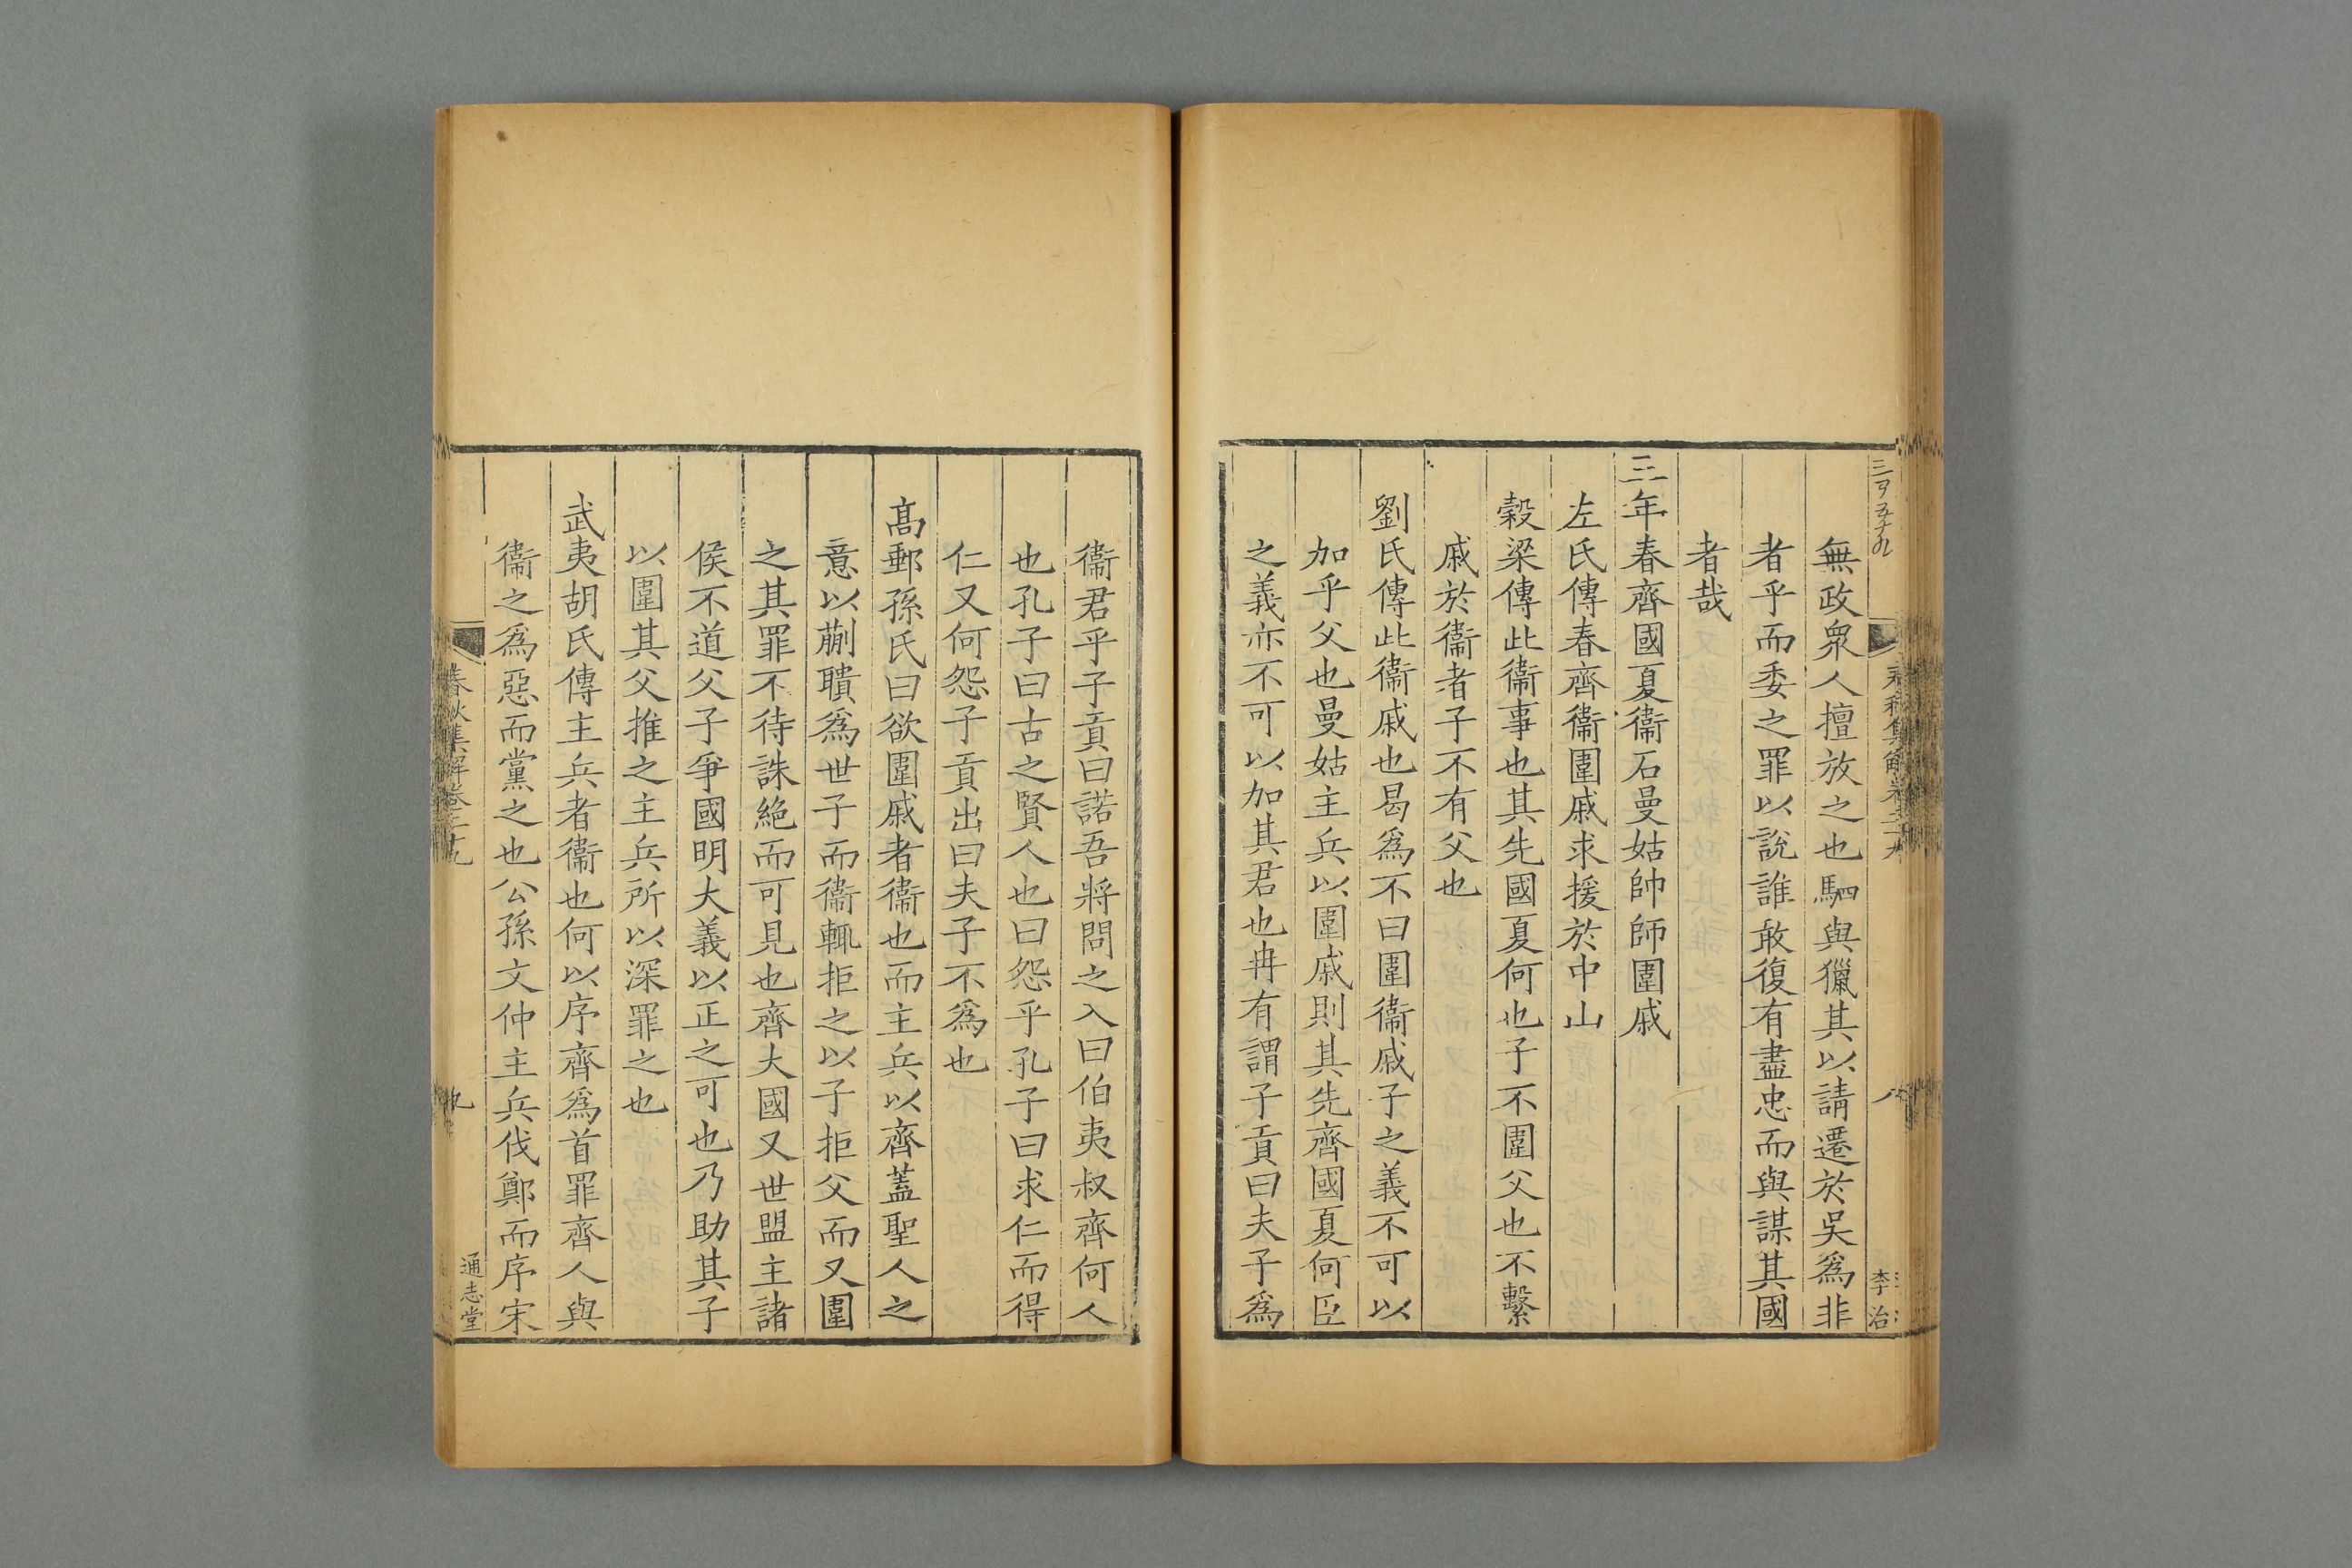 三百五十九
春秋集解卷二十九
八
李治
無政衆人擅放之也駟與獵其以請遷於吳爲非
者乎而委之罪以說誰敢復有盡忠而與謀其國
者哉
三年春齊國夏衞石曼姑帥師圍戚
左氏傳春齊衞圍戚求援於中山
穀梁傳此衞事也其先國夏何也子不圍父也不繫
戚於衞者子不有父也
劉氏傳此衞戚也曷爲不曰圍衞戚子之義不可以
加乎父也曼姑主兵以圍戚則其先齊國夏何臣
之義亦不可以加其君也冉有謂子貢曰夫子爲
衞君乎子貢曰諾吾將問之入曰伯夷叔齊何人
也孔子曰古之賢人也曰怨乎孔子曰求仁而得
仁又何怨子貢出曰夫子不爲也
髙郵孫氏曰欲圍戚者衞也而主兵以齊蓋聖人之
意以蒯聵爲世子而衞輒拒之以子拒父而又圍
之其罪不待誅絶而可見也齊大國又世盟主諸
侯不道父子爭國明大義以正之可也乃助其子
以圍其父推之主兵所以深罪之也
武夷胡氏傳主兵者衞也何以序齊爲首罪齊人與
衞之爲惡而黨之也公孫文仲主兵伐鄭而序宋
春秋集解卷二十九
九
通志堂